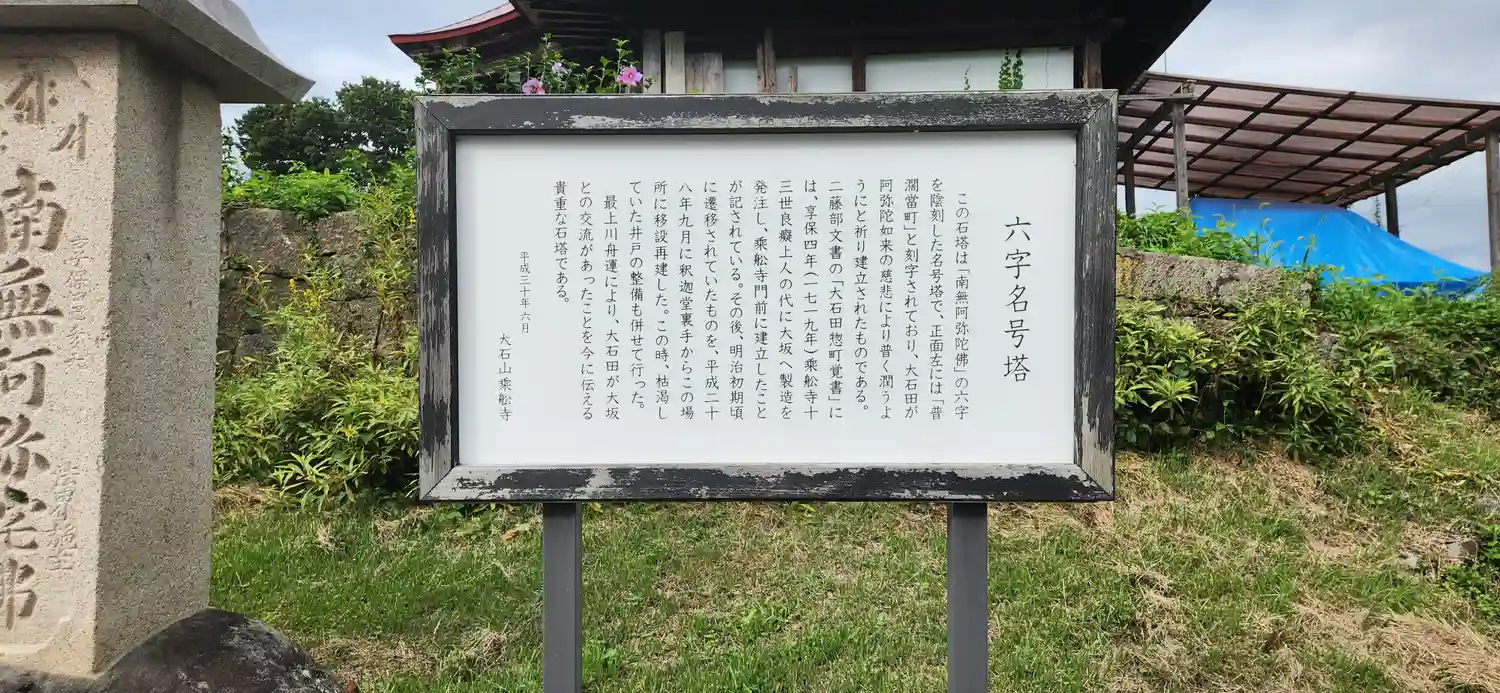 六字名号塔
この石塔は「南無阿弥陀佛」の六字
を陰刻した名号塔で、正面左には「普
濶當町」と刻字されており、大石田が
阿弥陀如来の慈悲により普く潤うよ
うにと祈り建立されたものである。
二藤部文書の「大石田惣町覚書」に
は、享保四年(一七一九年)乗舩寺十
三世良癡上人の代に大坂へ製造を
発注し、乗舩寺門前に建立したこと
が記されている。その後、明治初期頃
に遷移されていたものを、平成二十
八年九月に釈迦堂裏手からこの場
所に移設再建した。この時、枯渇し
ていた井戸の整備も併せて行った。
最上川舟運により、大石田が大坂
との交流があったことを今に伝える
貴重な石塔である。
平成三十年六月
大石山乗舩寺
南無阿弥陀佛